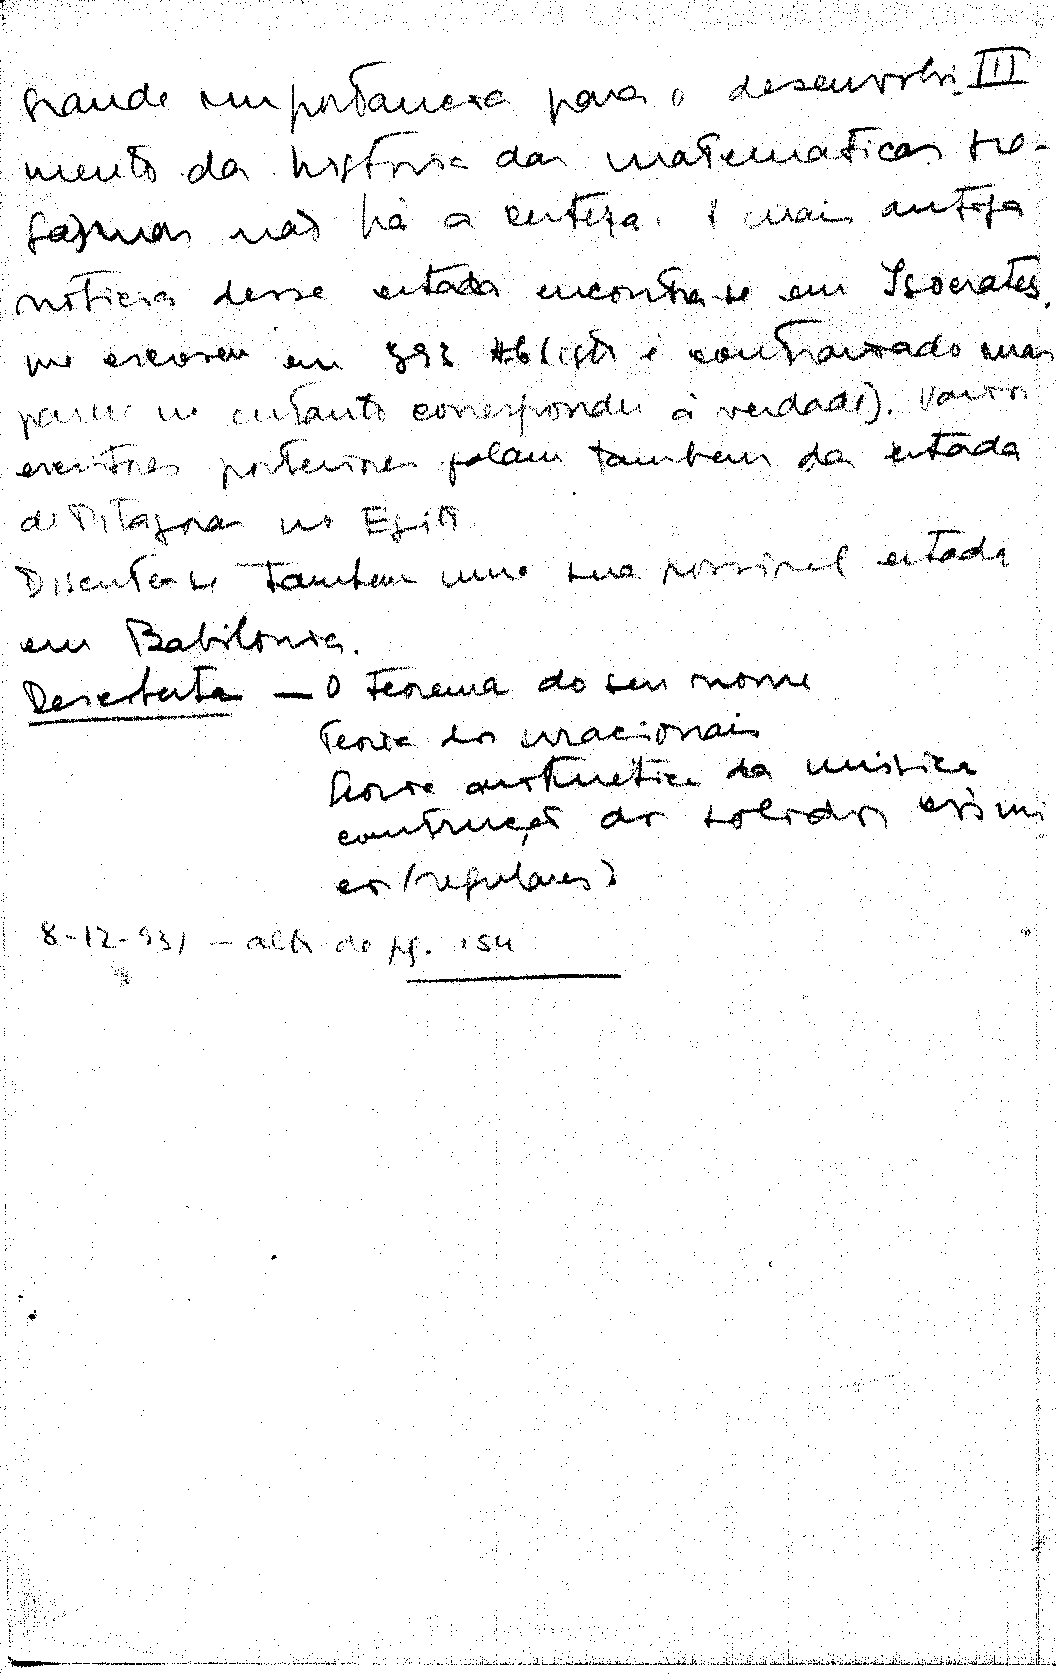 III
grande importancia para o desenvolvi-
mento da história das matematicas tre-
gas, mas não há a certeza. A mais antiga
noticia desse estada encontra-se em Isocrates,
que escreveu em 393 (isto é contrariado mas
parece no entanto corresponder á verdade). Varios
escritores posteriores falam tambem da estada
de Pitagoras no Egito
Discute-se tambem uma sua possivel estada
em Babilonia.
Descoberta — O teorema do seu nome
teoria dos irracionais
teoria aritmetica da musica
construção dos solidos cósmi
cos (regulares)
8-12-931 — alto de pg. 154